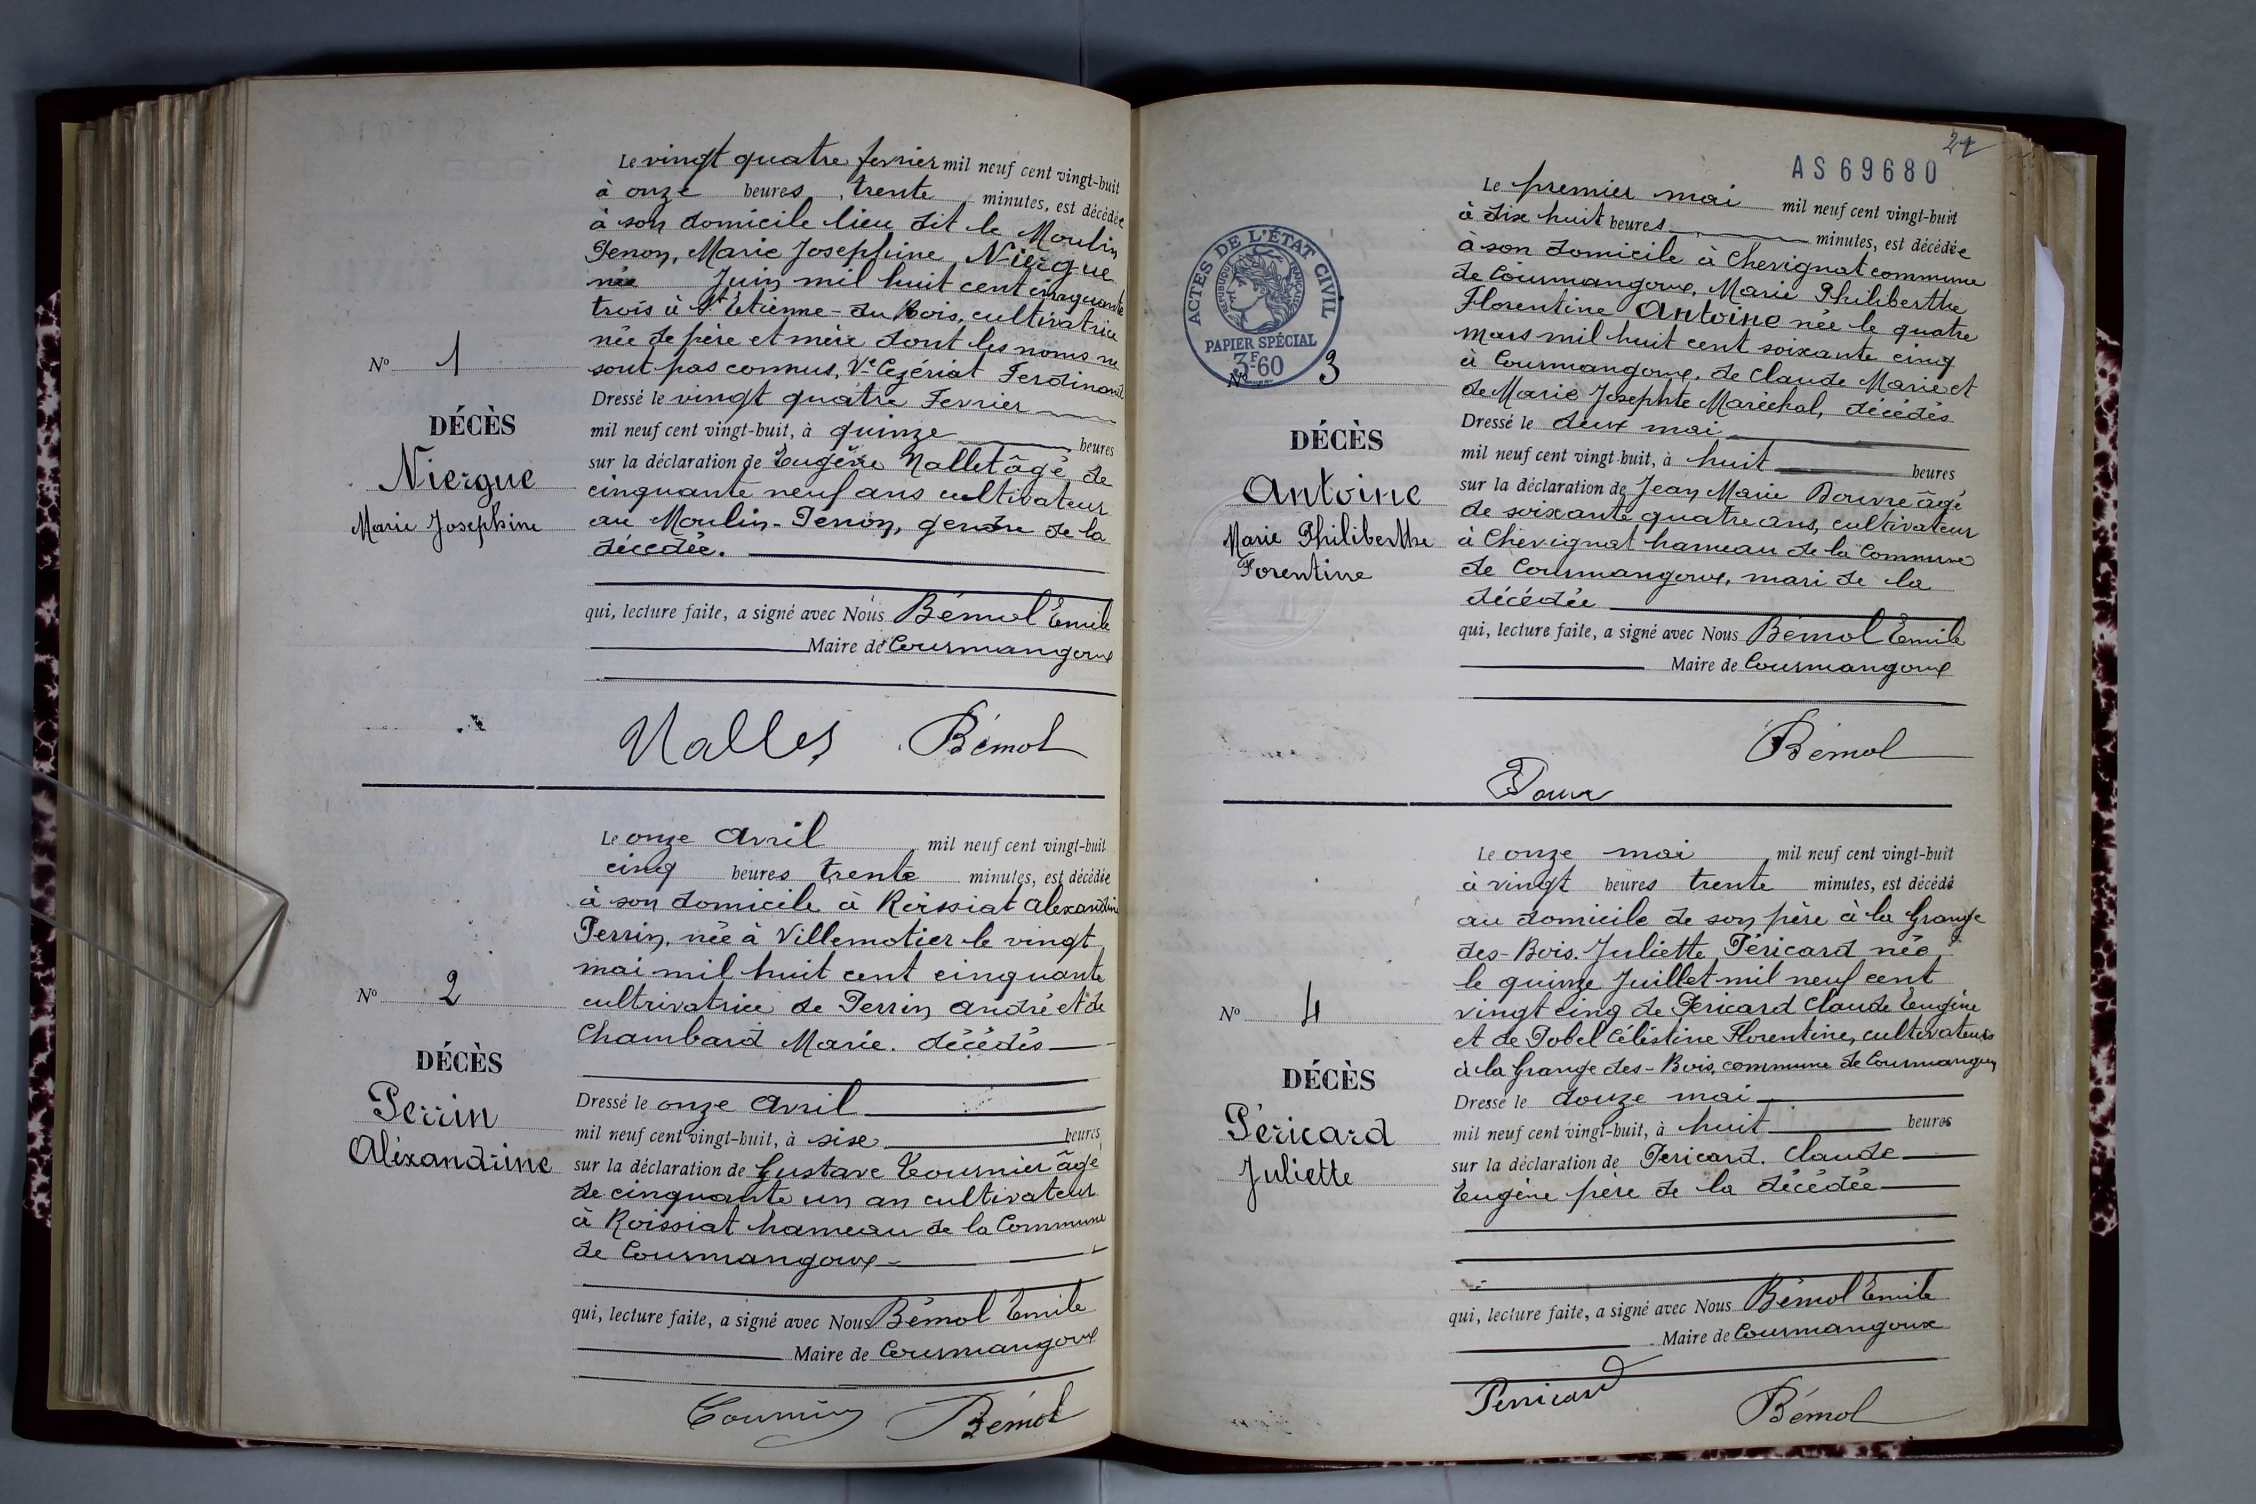 Le vingt quatre fevrier mil neuf cent vingt-huit
à onze heures trente minutes, est décédée
à son domicile lieu dit le Moulin
Penon, Marie Josephine Niergue
née Juin mil huit cent cinquante
trois à St Etienne-du Bois, cultivatrice
née de père et mère dont les noms ne
sont pas connus, Ve Cézériat Ferdinand
Dressé le vingt quatre Fevrier
mil neuf cent vingt-huit, à quinze heures
sur la déclaration de Eugène Nallet âgé de
cinquante neuf ans cultivateur
au Moulin-Penon, gendre de la
décédée.
qui, lecture faite, a signé avec Nous Bémol Emile
Maire de Courmangoux
Nallet Bémol
No 1
DÉCÈS
Niergue
Marie Josephine
Le onze Avril mil neuf cent vingt-huit
cinq heures trente minutes, est décédée
à son domicile à Roissiat Alexandrine
Perrin, née à Villemotier le vingt
mai mil huit cent cinquante
cultrivatrice de Perrin André et de
Chambard Marie. décédés
Dressé le onze Avril
mil neuf cent vingt-huit, à sise heures
sur la déclaration de Gustave Tournier âgé
de cinquante un an cultivateur
à Roissiat hameau de la Commune
de Courmangoux
qui, lecture faite, a signé avec Nous Bémol Emile
Maire de Courmangoux
Tournier Bémol
No 2
DÉCÈS
Perrin
Aléxandrine
22
AS 69680
ACTES DE L'ÉTAT CIVIL
RÉPUBLIQUE FRANÇAISE
PAPIER SPÉCIAL
3F60
Le premier mai mil neuf cent vingt-huit
à dix huit heures minutes, est décédée
à son domicile à Chevignat commune
de Courmangoux, Marie Philiberthe
Florentine Antoine née le quatre
Mars mil huit cent soixante cinq
à Courmangoux, de Claude Marie et
de Marie Josephte Maréchal, décédés
Dressé le deux mai
mil neuf cent vingt-huit, à huit heures
sur la déclaration de Jean Marie Bouvre âgé
de soixante quatre ans, cultivateur
à Chevignat hameau de la Commune
de Courmangoux, mari de la
décédée
qui, lecture faite, a signé avec Nous Bémol Emile
Maire de Courmangoux
Bémol
No 3
DÉCÈS
Antoine
Marie Philiberthe
Forentine
Le onze mai mil neuf cent vingt-huit
à vingt heures trente minutes, est décédé
au domicile de son père à la Grange
des-Bois. Juliette Péricard née
le quinze Juillet mil neuf cent
vingt cinq de Péricard Claude Eugène
et de Pobel Céléstine Florentine, cultivateurs
à la Grange des-Bois, commune de Courmangoux
Dressé le douze mai
mil neuf cent vingt-huit, à huit heures
sur la déclaration de Pericard. Claude
Eugène père de la décédée
qui, lecture faite, a signé avec Nous Bémol Emile
Maire de Courmangoux
Perricard Bémol
No 4
DÉCÈS
Péricard
Juliette